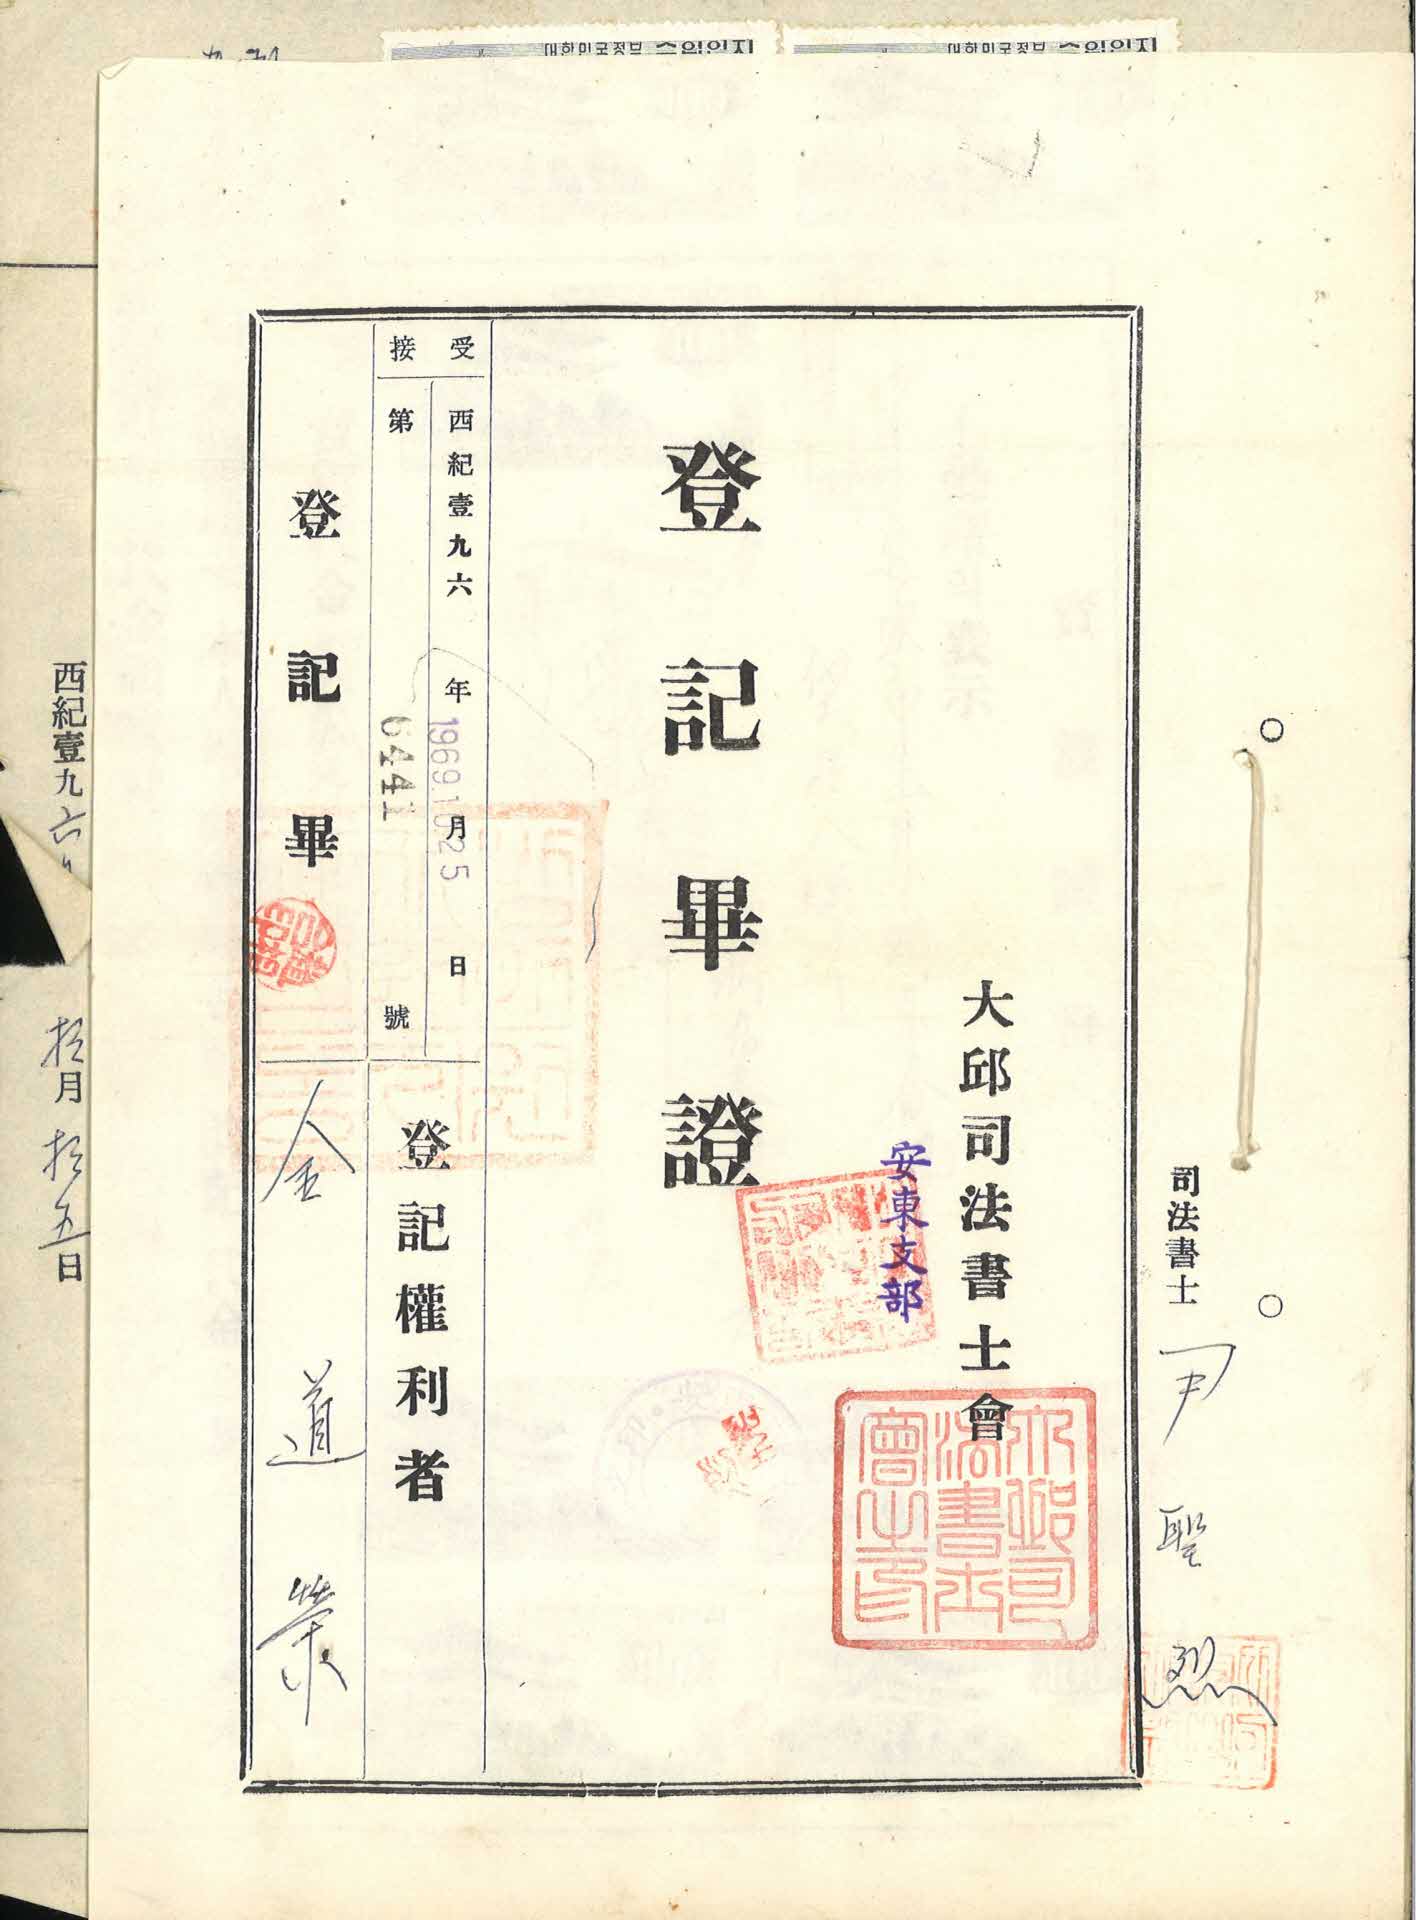 대한민국정부 수입인지
대한민국정부 수입인지
司法書士 尹聖烈
大邱司法書士會
安東支部
大邱司法書士會之印
登記畢證
受接
西紀壹九六 年 月 日
1969.10.25
第 6441 號
登記權利者
登記畢
金道榮
西紀壹九六
拾月拾五日